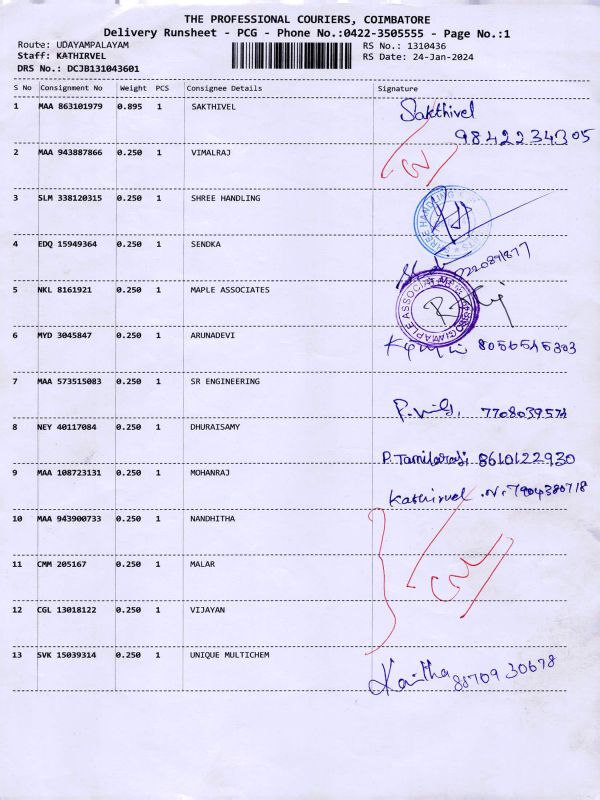 THE PROFESSIONAL COURIERS, COIMBATORE
Delivery Runsheet - PCG - Phone No.:0422-3505555 - Page No.:1
Route: UDAYAMPALAYAM
RS No.: 1310436
Staff: KATHIRVEL
RS Date: 24-Jan-2024
DRS No.: DCJB131043601
S No Consignment No Weight PCS Consignee Details Signature
1 MAA 863101979 0.895 1 SAKTHIVEL Sakthivel
9842234305
2 MAA 943887866 0.250 1 VIMALRAJ
3 SLM 338120315 0.250 1 SHREE HANDLING
4 EDQ 15949364 0.250 1 SENDKA
5 NKL 8161921 0.250 1 MAPLE ASSOCIATES
6 MYD 3045847 0.250 1 ARUNADEVI
8056545303
7 MAA 573515083 0.250 1 SR ENGINEERING
8 NEY 40117084 0.250 1 DHURAISAMY
P. Tamilarasi 8610122930
9 MAA 108723131 0.250 1 MOHANRAJ
Kathirvel .N. 7904380718
10 MAA 943900733 0.250 1 NANDHITHA
11 CMM 205167 0.250 1 MALAR
12 CGL 13018122 0.250 1 VIJAYAN
13 SVK 15039314 0.250 1 UNIQUE MULTICHEM
Kavitha 8870930678